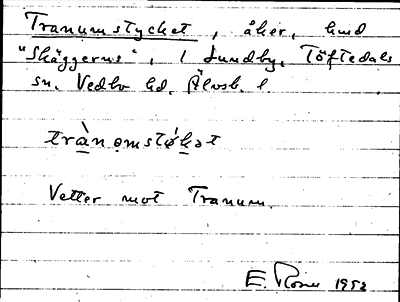 Tranumstycket, åker, hmd
"Skäggerns", i Lundby, Töftedals
sn. Vedbo hd. Älvsb. l.
trànomstǿkət
Vetter mot Tranum.
E. Rosin 1952